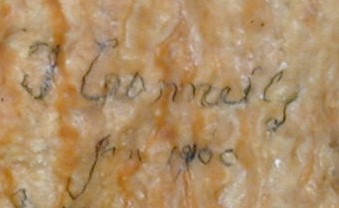 J Connelly
Jan 1900